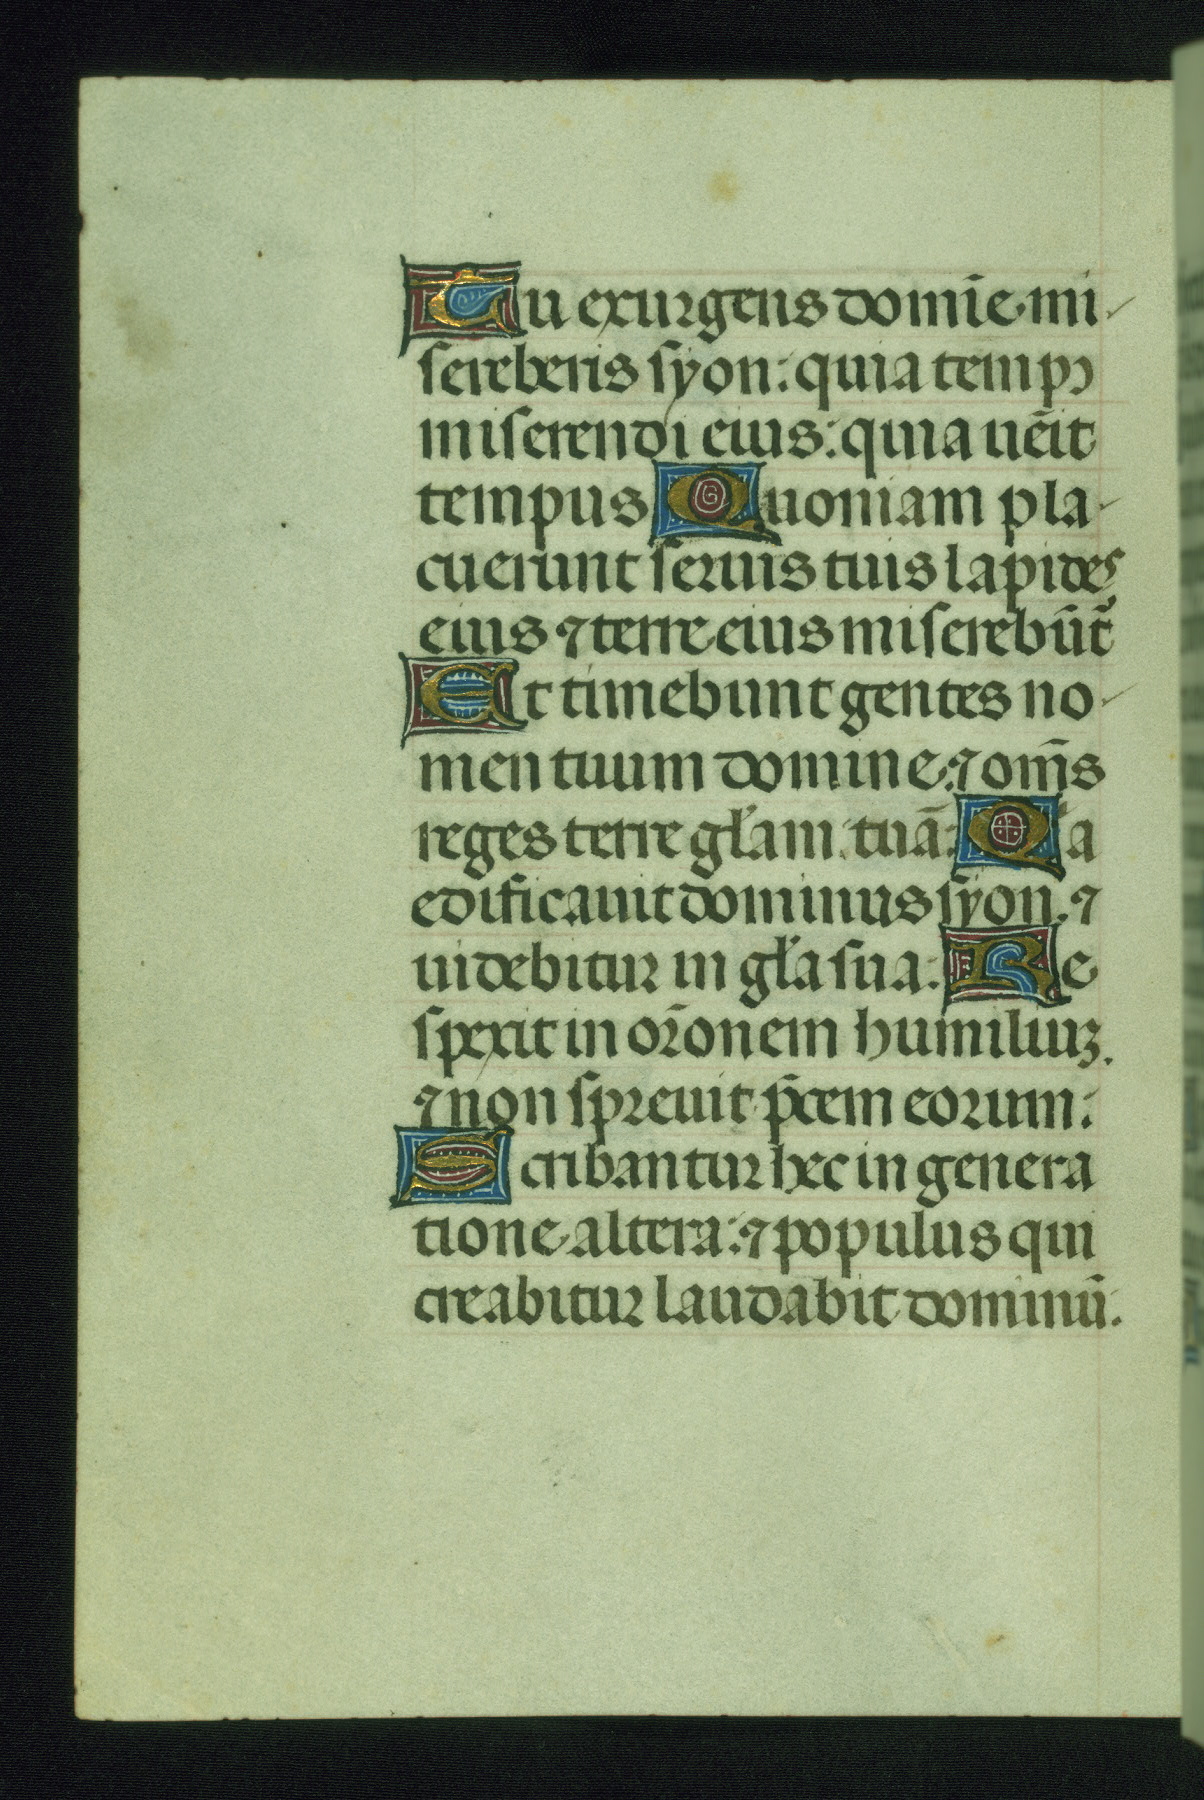 Tu exurgens domīe mi-
sereberis syon: quia tempꝰ
miserendi eius: quia uēit
tempus Quoniam pla-
cuerunt seruis tuis lapides
eius ⁊ terre eius miserebūt᷑
Et timebunt gentes no-
men tuum domine: ⁊ om̄s
reges terre gl̄am tuā: Qͥa
edificauit dominus syon. ⁊
uidebitur in gl̄a sua: Re
spexit in or̄onem humiliuꝫ.
⁊ non spreuit p̄cem eorum:
Scribantur hec in genera
tione altera: ⁊ populus qui
creabitur laudabit dominū: